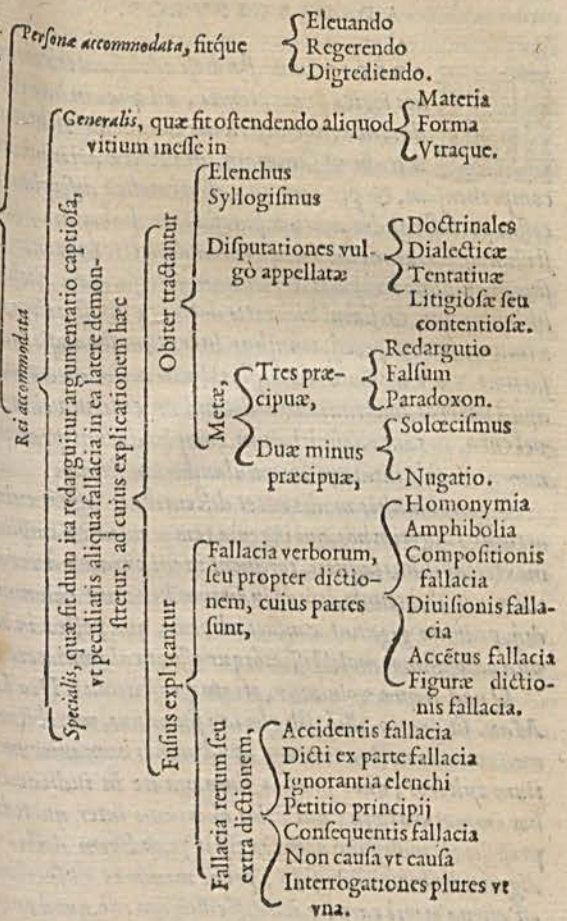 Perſonæ accommodata, fitq́ue
Eleuando
Regerendo
Digrediendo.
Rei accommodata
Generalis, quæ fit oſtendendo aliquod
vitium ineſſe in
Materia
Forma
Vtraque.
Specialis, quæ fit dum ita redarguitur argumentatio captioſa,
vt peculiaris aliqua fallacia in ea latere demon-
ſtretur, ad cuius explicationem hæc
Obiter tractantur
Elenchus
Syllogiſmus
Diſputationes vul
gò appellatæ
Doctrinales
Dialecticæ
Tentatiuæ
Litigioſæ ſeu
contentioſæ.
Metæ,
Tres præ-
cipuæ,
Redargutio
Falſum
Paradoxon.
Duæ minus
præcipuæ,
Solœciſmus
Nugatio.
Fuſius explicantur
Fallacia verborum,
ſeu propter dictio-
nem, cuius partes
ſunt,
Homonymia
Amphibolia
Compoſitionis
fallacia
Diuiſionis falla-
cia
Accẽtus fallacia
Figuræ dictio-
nis fallacia.
Fallacia rerum ſeu
extra dictionem,
Accidentis fallacia
Dicti ex parte fallacia
Ignorantia elenchi
Petitio principij
Conſequentis fallacia
Non cauſa vt cauſa
Interrogationes plures vt
vna.